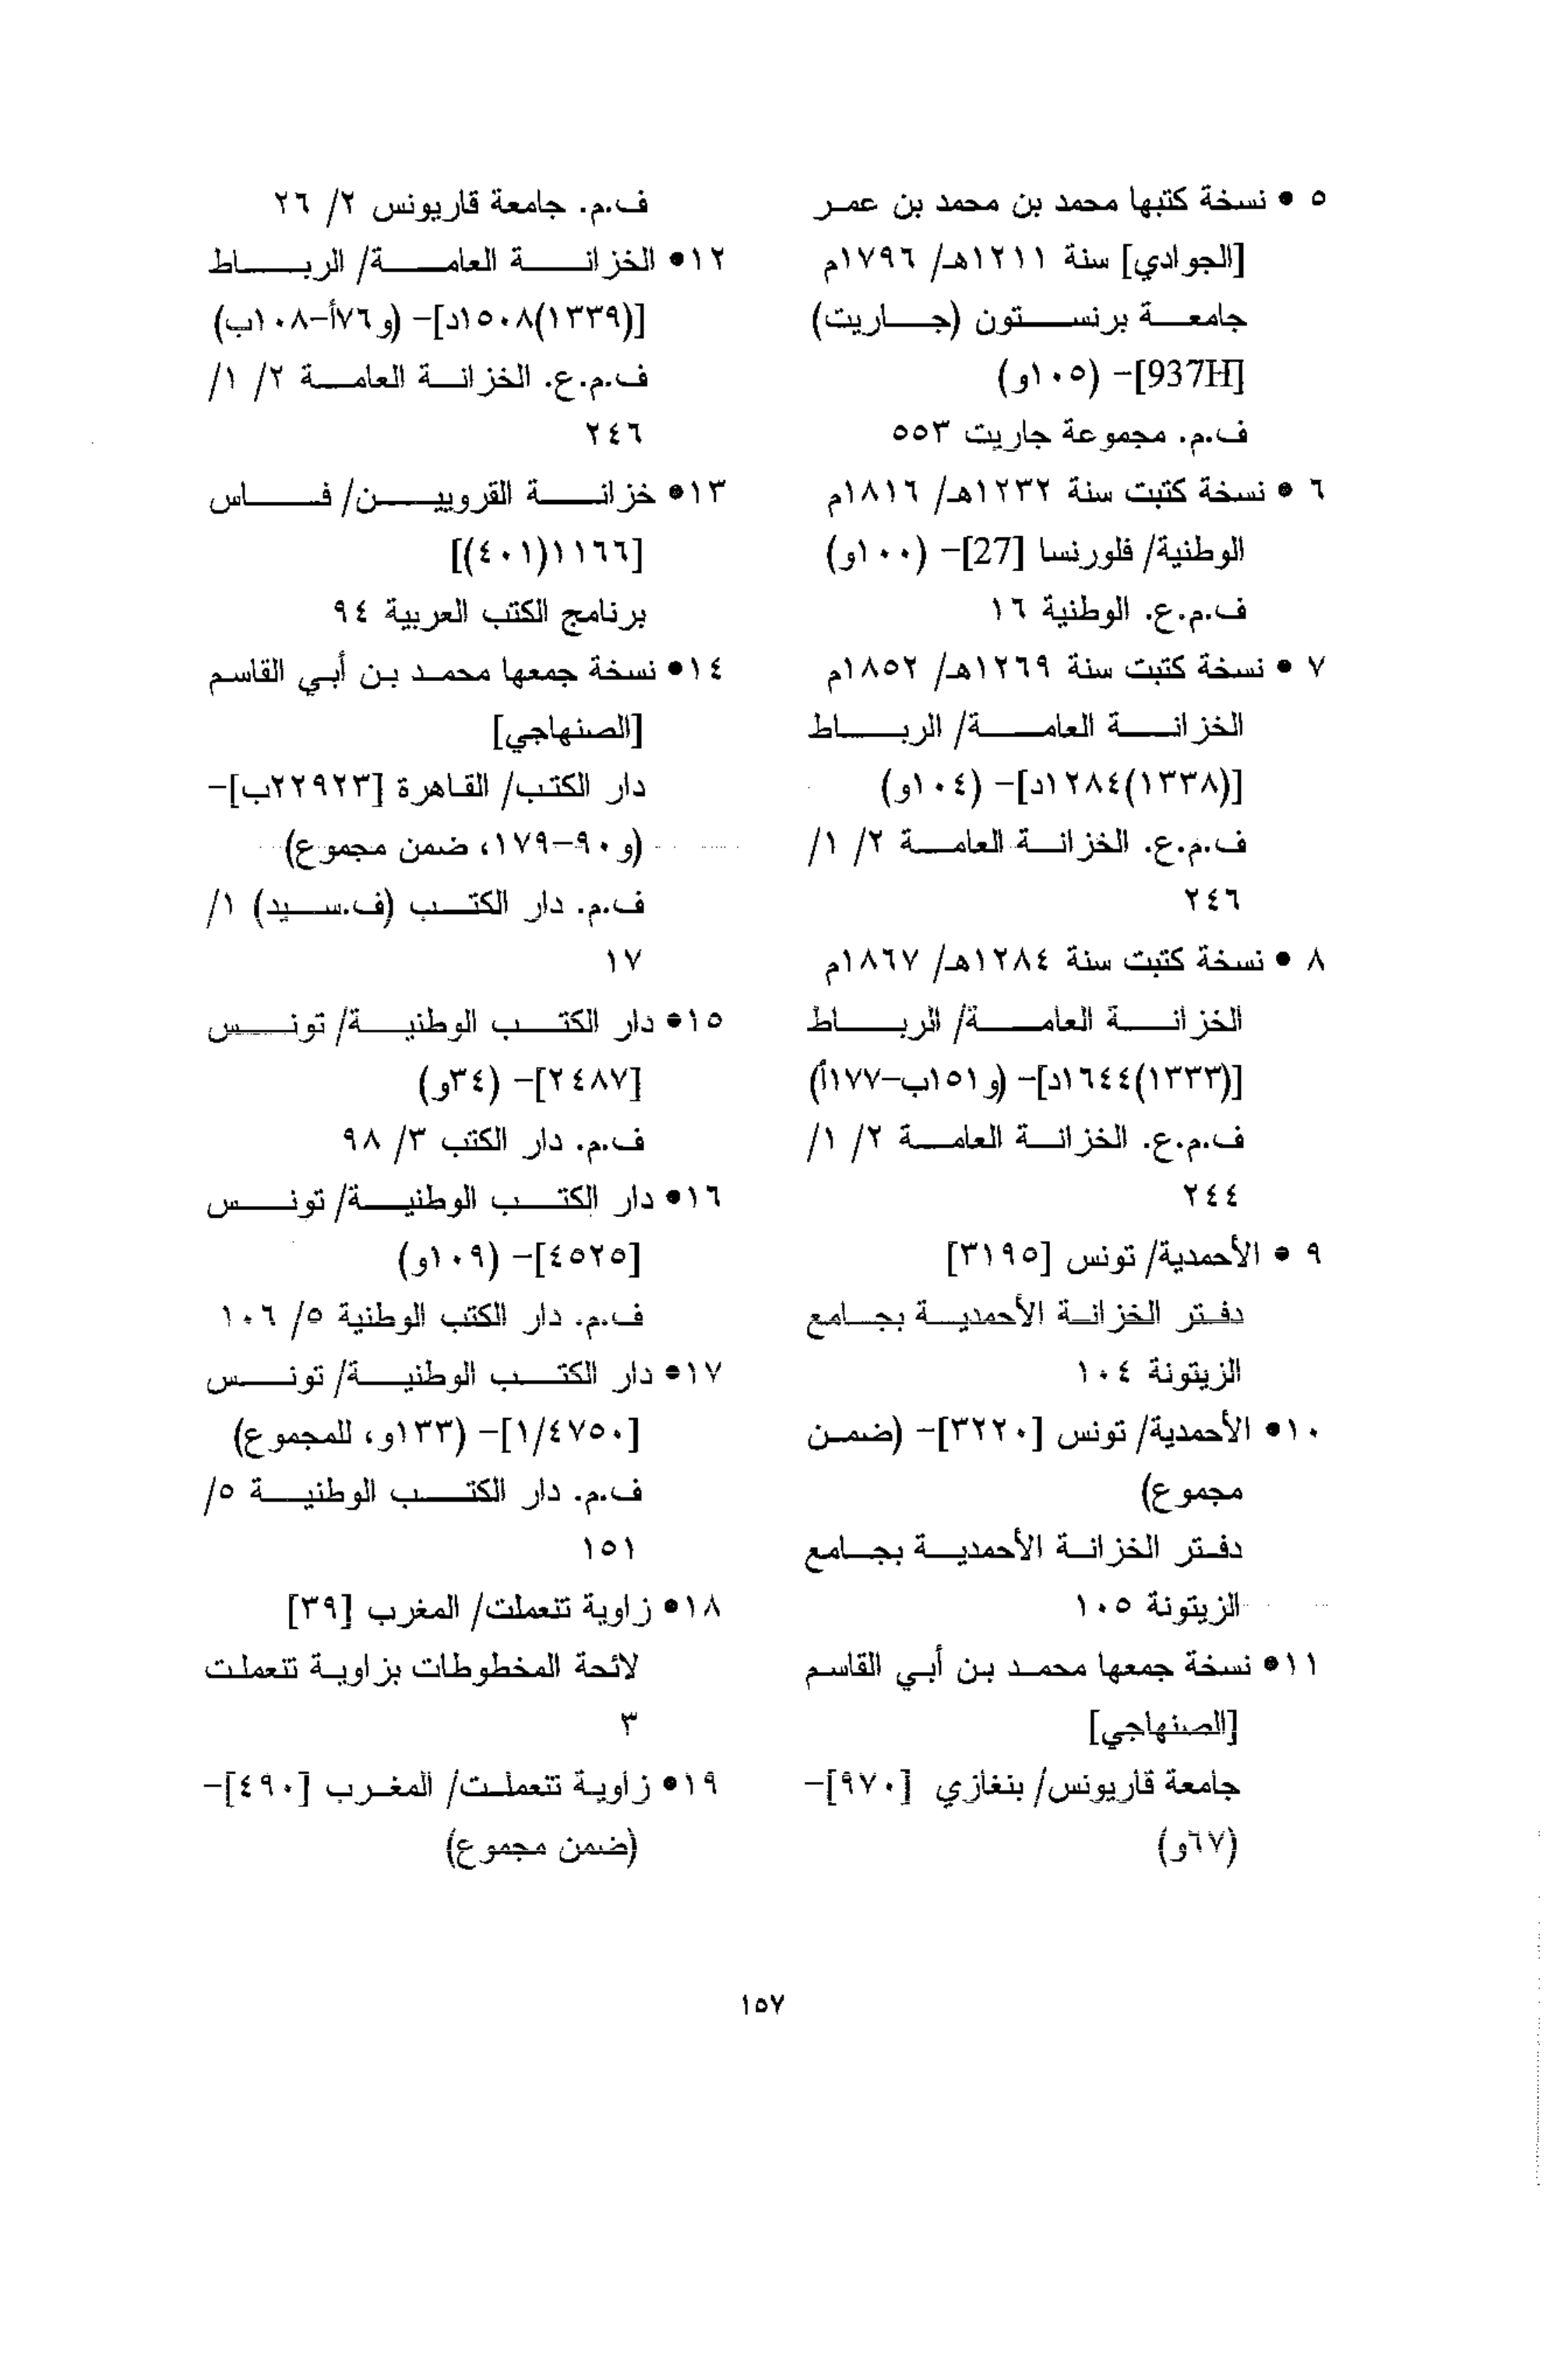 ٥ • نسخة كتبها محمد بن محمد بن عمر
[الجوادي] سنة ١٢١١هـ/ ١٧٩٦م
جامعة برنستون (جاريت)
[937H]- (١٠٥و)
ف.م. مجموعة جاريت ٥٥٣
٦ • نسخة كتبت سنة ١٢٣٢هـ/ ١٨١٦م
الوطنية/ فلورنسا [27]- (١٠٠و)
ف.م.ع. الوطنية ١٦
٧ • نسخة كتبت سنة ١٢٦٩هـ/ ١٨٥٢م
الخزانة العامة/ الرباط
[(١٣٣٨)١٢٨٤د]- (١٠٤و)
ف.م.ع. الخزانة العامة ٢/ ١/
٢٤٦
٨ • نسخة كتبت سنة ١٢٨٤هـ/ ١٨٦٧م
الخزانة العامة/ الرباط
[(١٣٣٣)١٦٤٤د]- (و١٥١ب-١٧٧أ)
ف.م.ع. الخزانة العامة ٢/ ١/
٢٤٤
٩ • الأحمدية/ تونس [٣١٩٥]
دفتر الخزانة الأحمدية بجامع
الزيتونة ١٠٤
١٠• الأحمدية/ تونس [٣٢٢٠]- (ضمن
مجموع)
دفتر الخزانة الأحمدية بجامع
الزيتونة ١٠٥
١١• نسخة جمعها محمد بن أبي القاسم
[الصنهاجي]
جامعة قاريونس/ بنغازي [٩٧٠]-
(٦٧و)
ف.م. جامعة قاريونس ٢/ ٢٦
١٢• الخزانة العامة/ الرباط
[(١٣٣٩)١٥٠٨د]- (و٧٦أ-١٠٨ب)
ف.م.ع. الخزانة العامة ٢/ ١/
٢٤٦
١٣• خزانة القرويين/ فاس
[١١٦٦(٤٠١)]
برنامج الكتب العربية ٩٤
١٤• نسخة جمعها محمد بن أبي القاسم
[الصنهاجي]
دار الكتب/ القاهرة [٢٢٩٢٣ب]-
(و٩٠-١٧٩، ضمن مجموع)
ف.م. دار الكتب (ف.سيد) ١/
١٧
١٥• دار الكتب الوطنية/ تونس
[٢٤٨٧]- (٣٤و)
ف.م. دار الكتب ٣/ ٩٨
١٦• دار الكتب الوطنية/ تونس
[٤٥٢٥]- (١٠٩و)
ف.م. دار الكتب الوطنية ٥/ ١٠٦
١٧• دار الكتب الوطنية/ تونس
[١/٤٧٥٠]- (١٣٣و، للمجموع)
ف.م. دار الكتب الوطنية ٥/
١٥١
١٨• زاوية تنعملت/ المغرب [٣٩]
لائحة المخطوطات بزاوية تنعملت
٣
١٩• زاوية تنعملت/ المغرب [٤٩٠]-
(ضمن مجموع)
١٥٧